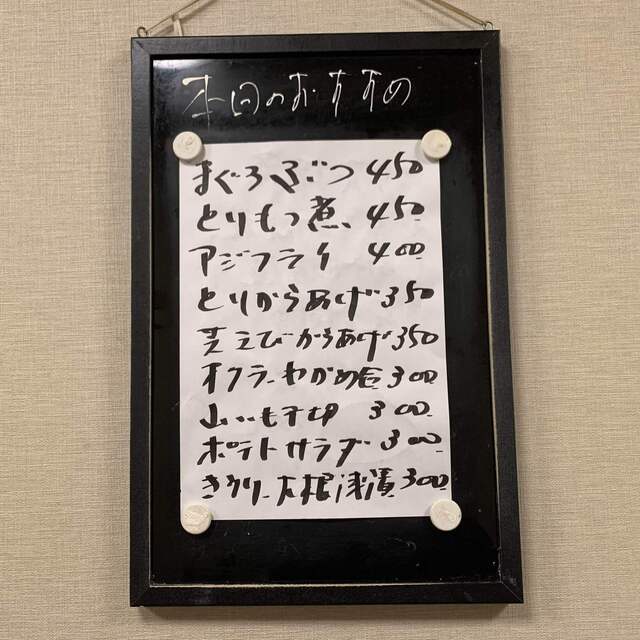 本日のおすすめ
まぐろぶつ 450
とりもつ煮 450
アジフライ 400
とりからあげ 350
芝えびからあげ 350
オクラ、わかめ合 300
山いも千切 300
ポテトサラダ 300
きうり、大根浅漬 300